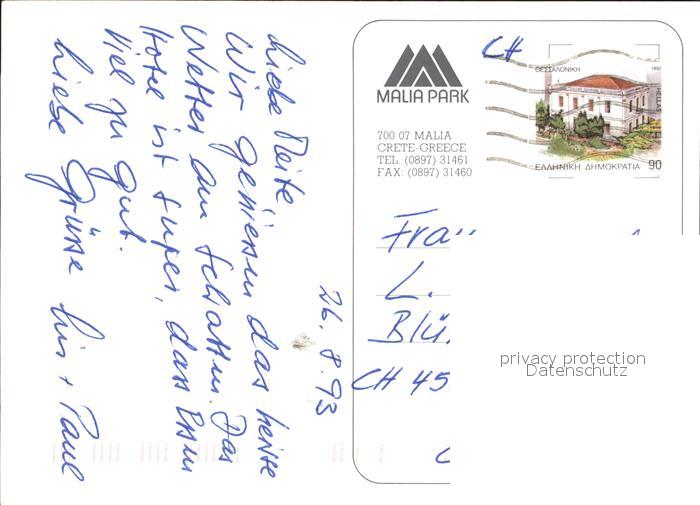 26.8.93
Liebe Meite
Wir geniessen das heisse
Wetter am Schatten. Das
Hotel ist super, dass Essen
viel zu gut.
Liebe Grüsse Lis + Paul
MALIA PARK
700 07 MALIA
CRETE-GREECE
TEL. (0897) 31461
FAX: (0897) 31460
CH
ΘΕΣΣΑΛΟΝΙΚΗ 1992
HELLAS
ΕΛΛΗΝΙΚΗ ΔΗΜΟΚΡΑΤΙΑ 90
Frau
L.
Blü
CH 45
privacy protection
Datenschutz